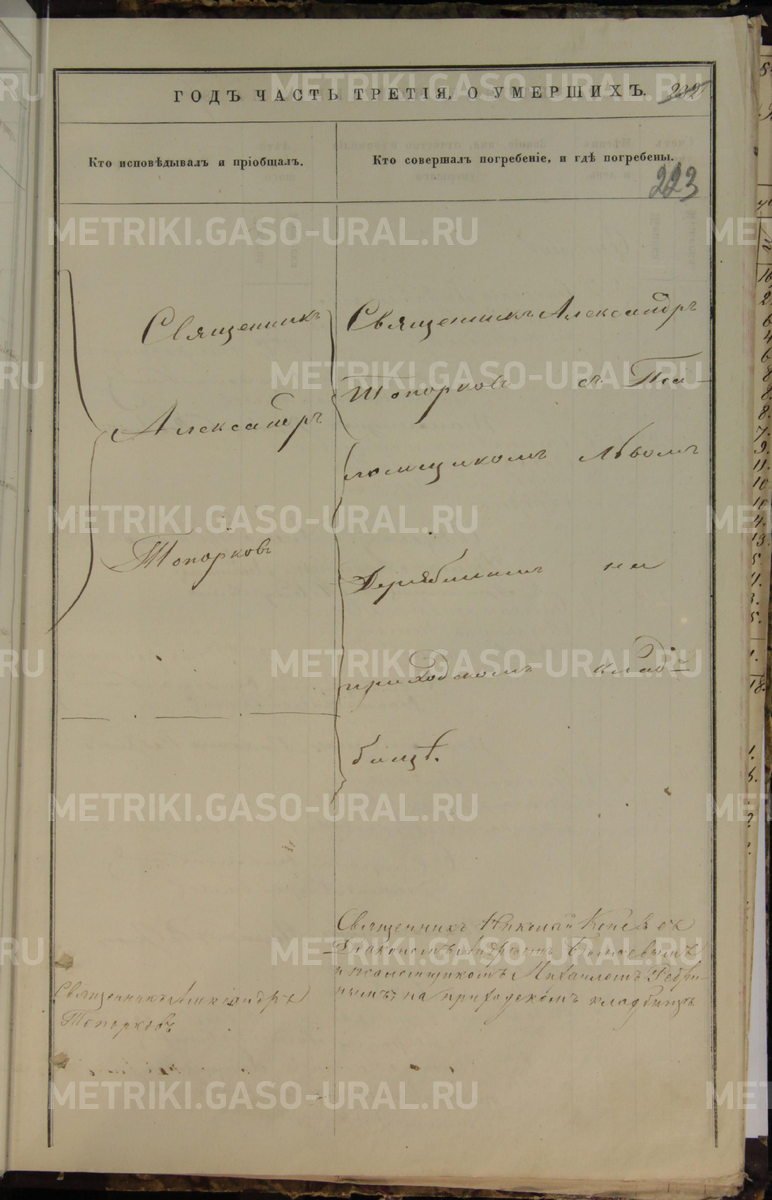 ГОДЪ ЧАСТЬ ТРЕТІЯ, О УМЕРШИХЪ.
Кто исповѣдывалъ и пріобщалъ.
Кто совершалъ погребеніе, и гдѣ погребены.
223
Священникъ
Александръ
Топорковъ
Священникъ Александръ
Топорковъ съ Пса-
ломщикомъ Львомъ
Дерябинымъ на
приходскомъ клад-
бищѣ.
Священникъ Александръ
Топорковъ
Священникъ Николай съ
Діакономъ
и псаломщикомъ Михаиломъ
на приходскомъ кладбищѣ
METRIKI.GASO-URAL.RU